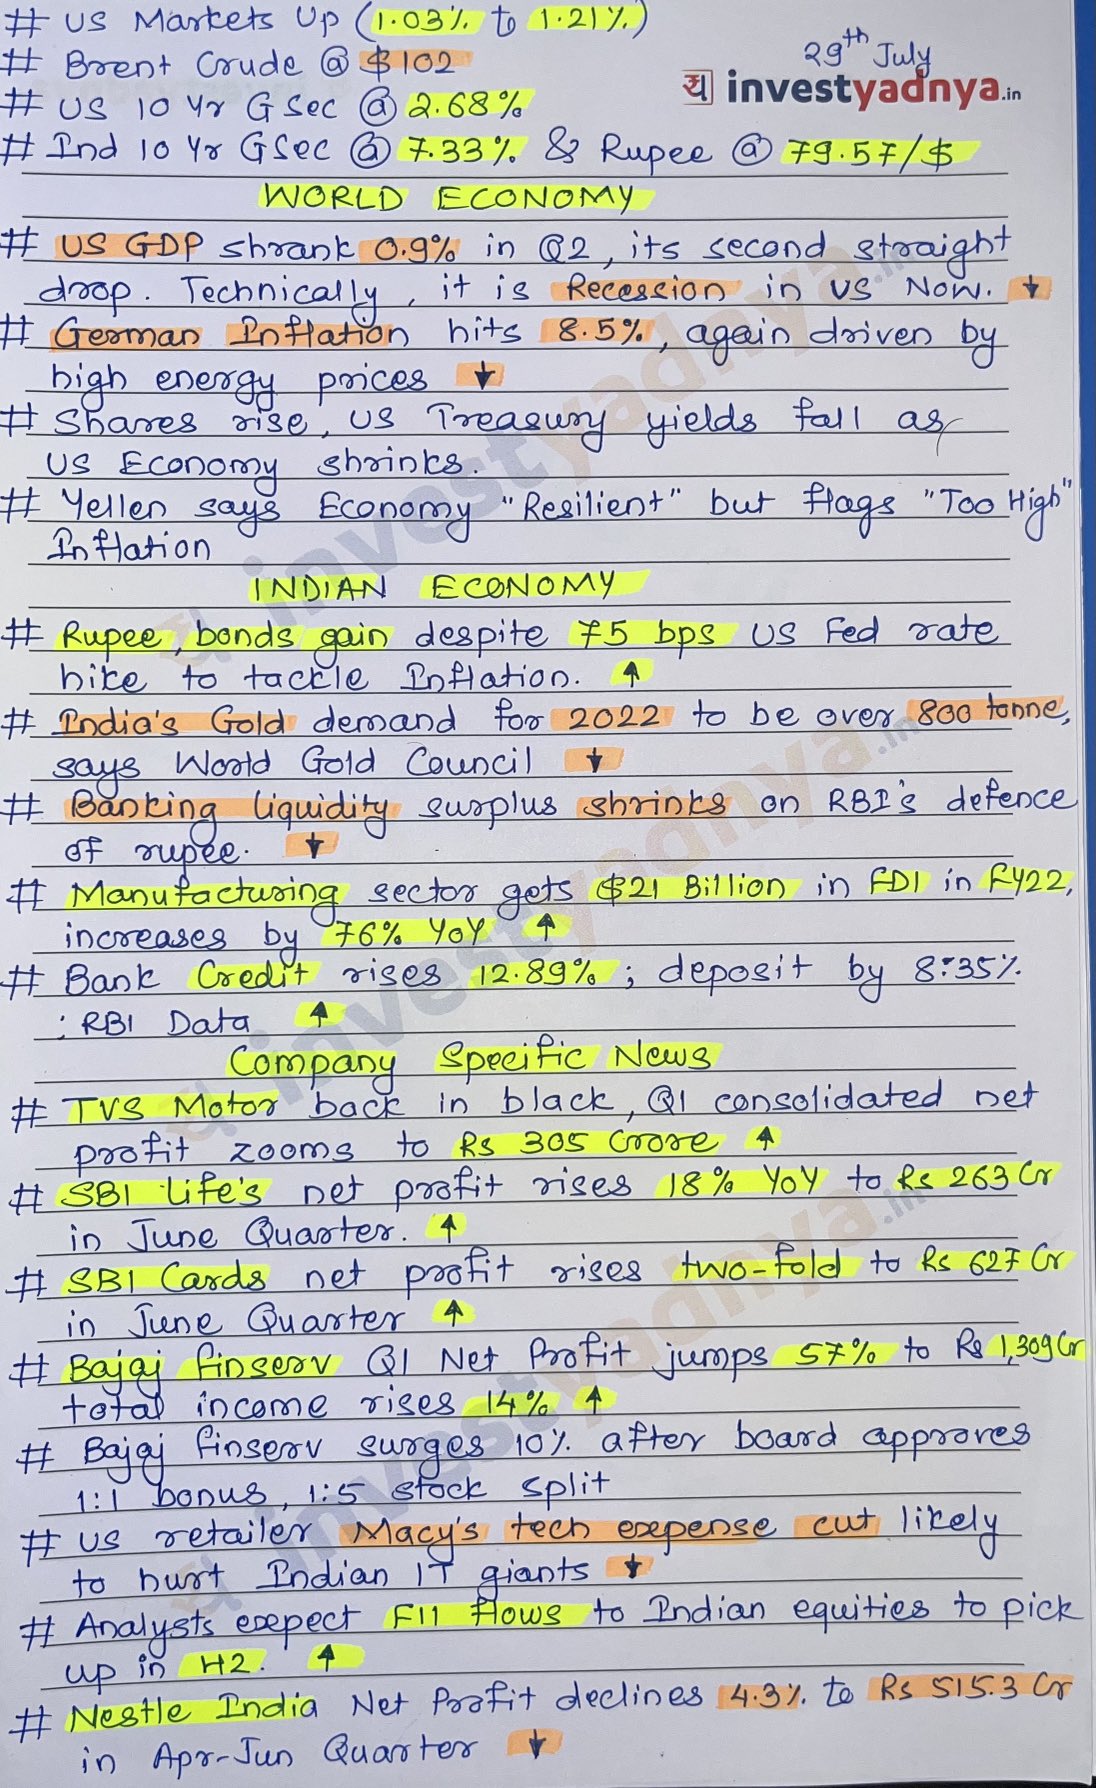 # US Markets Up (1.03% to 1.21%)
29th July
# Brent Crude @ $102
य investyadnya.in
# US 10 Yr GSec @ 2.68%
# Ind 10 Yr GSec @ 7.33% & Rupee @ 79.57/$
WORLD ECONOMY
# US GDP shrank 0.9% in Q2, its second straight
drop. Technically, it is Recession in US Now. ↓
# German Inflation hits 8.5%, again driven by
high energy prices ↓
# Shares rise, US Treasury yields fall as
US Economy shrinks.
# Yellen says Economy "Resilient" but flags "Too High"
Inflation
INDIAN ECONOMY
# Rupee, bonds gain despite 75 bps US Fed rate
hike to tackle Inflation. ↑
# India's Gold demand for 2022 to be over 800 tonne,
says World Gold Council ↓
# Banking liquidity surplus shrinks on RBI's defence
of rupee. ↓
# Manufacturing sector gets $21 Billion in FDI in FY22,
increases by 76% YoY ↑
# Bank Credit rises 12.89%; deposit by 8.35%
: RBI Data ↑
Company Specific News
# TVS Motor back in black, Q1 consolidated net
profit zooms to Rs 305 Crore ↑
# SBI Life's net profit rises 18% YoY to Rs 263 Cr
in June Quarter. ↑
# SBI Cards net profit rises two-fold to Rs 627 Cr
in June Quarter ↑
# Bajaj Finserv Q1 Net Profit jumps 57% to Rs 1,309 Cr
total income rises 14% ↑
# Bajaj Finserv surges 10% after board approves
1:1 bonus, 1:5 stock split
# US retailer Macy's tech expense cut likely
to hurt Indian IT giants ↓
# Analysts expect FII flows to Indian equities to pick
up in H2. ↑
# Nestle India Net Profit declines 4.3% to Rs 515.3 Cr
in Apr-Jun Quarter ↓